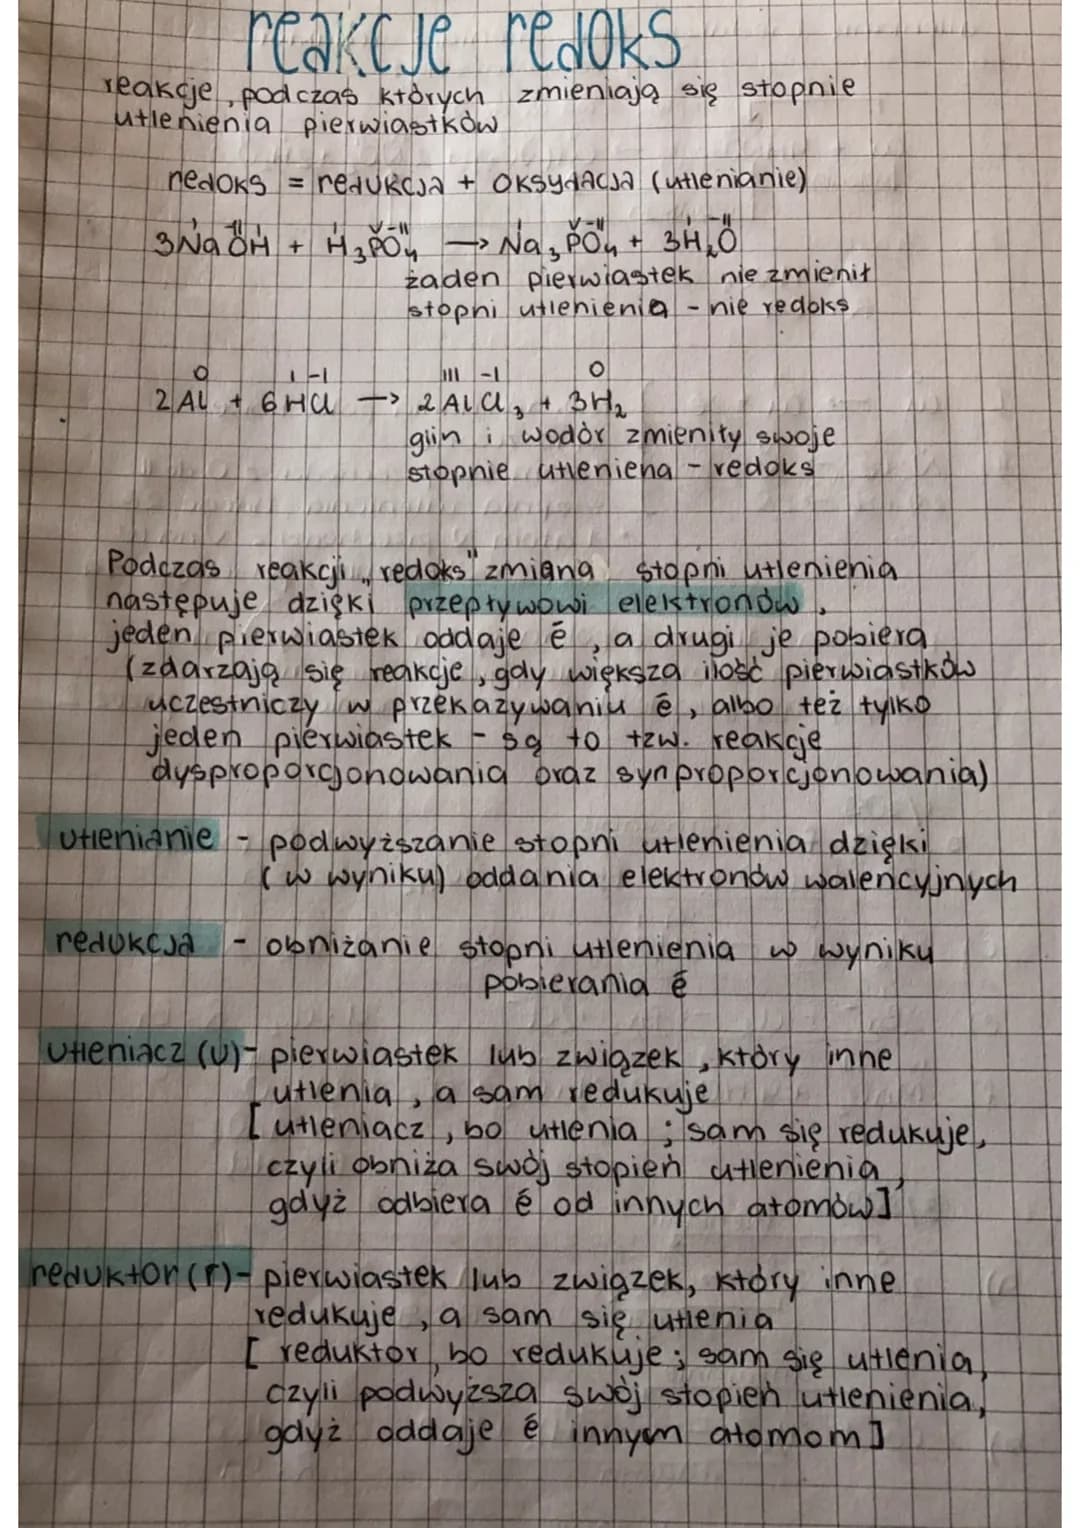 reakcje redoks
reakcje, podczas których zmieniają się stopnie
utlenienia pierwiastków
redoks = redukcja + oksydacja (utlenianie)
I -II I I V -II I V -II I -II
3NaOH + H₃PO₄ → Na₃PO₄ + 3H₂O
żaden pierwiastek nie zmienił
stopni utlenienia - nie redoks
0 I -I III -I 0
2Al + 6HCl → 2AlCl₃ + 3H₂
glin i wodór zmieniły swoje
stopnie utleniena - redoks
Podczas reakcji „redoks" zmiana stopni utlenienia
następuje dzięki przepływowi elektronów.
jeden pierwiastek oddaje ē, a drugi je pobiera
(zdarzają się reakcje, gdy większa ilość pierwiastków
uczestniczy w przekazywaniu ē, albo też tylko
jeden pierwiastek - są to tzw. reakcje
dysproporcjonowania oraz synproporcjonowania)
utlenianie - podwyższanie stopni utlenienia dzięki
(w wyniku) oddania elektronów walencyjnych
redukcja - obniżanie stopni utlenienia w wyniku
pobierania ē
utleniacz (U) - pierwiastek lub związek, który inne
utlenia, a sam redukuje
[utleniacz, bo utlenia; sam się redukuje,
czyli obniża swój stopień utlenienia,
gdyż odbiera ē od innych atomów]
reduktor (r) - pierwiastek lub związek, który inne
redukuje, a sam się utlenia
[reduktor, bo redukuje; sam się utlenia,
czyli podwyższa swój stopień utlenienia,
gdyż oddaje ē innym atomom]